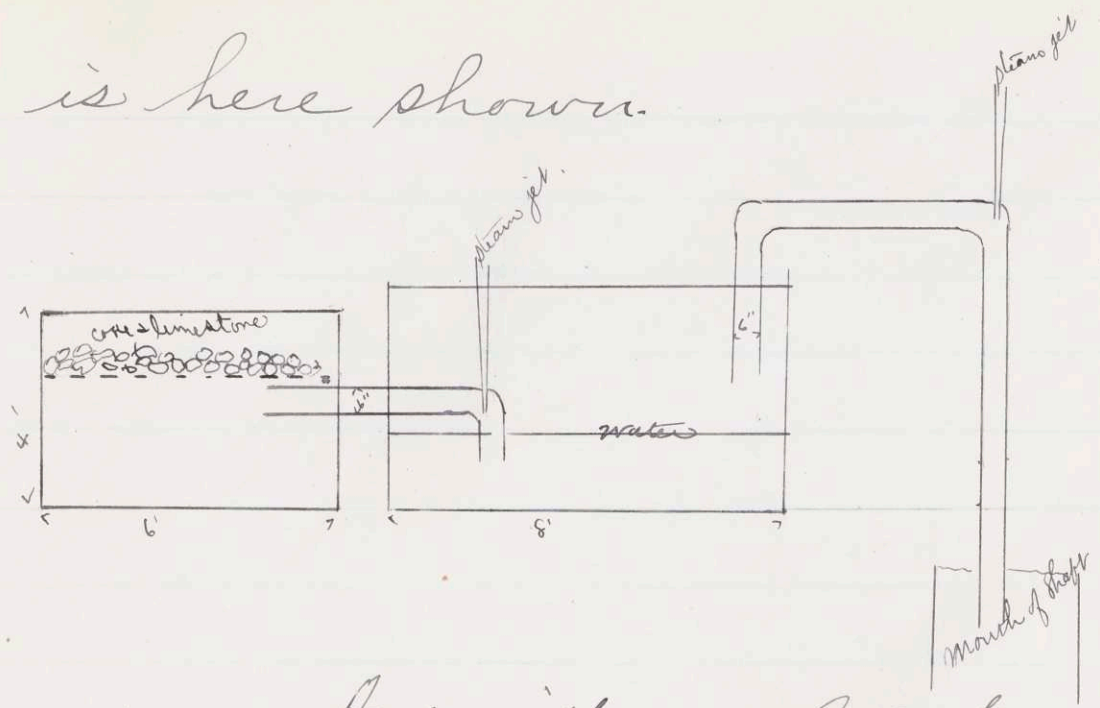 is here shown.
steam jet
steam jet.
coke & limestone
6"
6"
4'
water
6'
8'
Mouth of Shaft